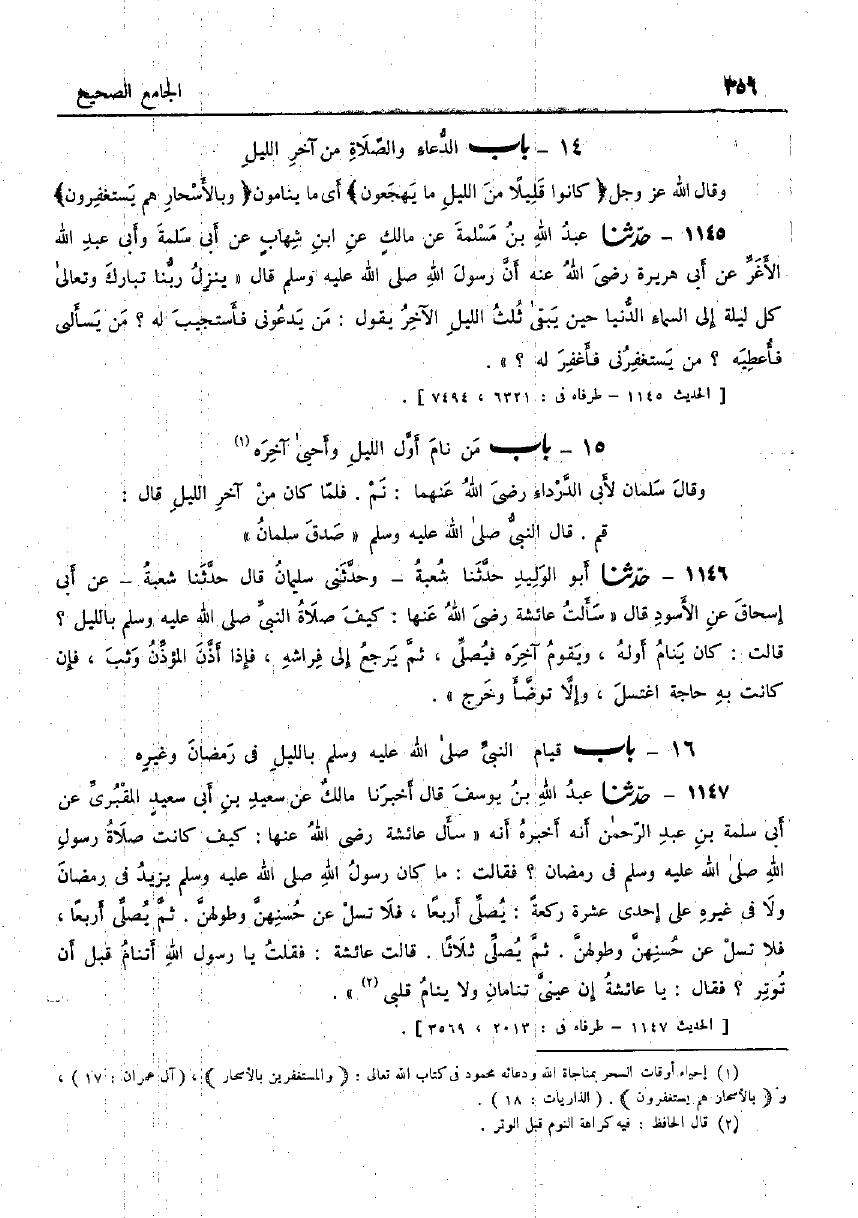 ٣٥٦
الجامع الصحيح
١٤ - باب الدُّعاءِ والصَّلَاةِ من آخرِ الليلِ
وقال الله عز وجل ﴿ كانوا قَلِيلًا منَ الليلِ ما يَهجَعون ﴾ أى ما ينامون ﴿ وبالأَسْحارِ هم يَستغفِرون ﴾
١١٤٥ - حدّثنا عبدُ اللهِ بنُ مَسْلمةَ عن مالكٍ عنِ ابنِ شِهابٍ عن أبى سَلمةَ وأبى عبدِ الله
الأَغَرِّ عن أبى هريرة رضىَ اللهُ عنه أنَّ رسولَ اللهِ صلى الله عليه وسلم قال « ينزِلُ ربُّنا تبارك وتعالىٰ
كل ليلة إلى السماءِ الدُّنيا حين يَبقىٰ ثُلثُ الليلِ الآخِرُ يقول : مَن يَدعُونى فأستجيبَ له ؟ مَن يَسألنى
فأُعطِيَه ؟ من يَستغفِرُنى فأغفِرَ له ؟ » .
[ الحديث ١١٤٥ - طرفاه فى : ٦٣٢١ ، ٧٤٩٤ ] .
١٥ - باب مَن نامَ أوَّل الليلِ وأَحيىٰ آخِرَه (١)
وقالَ سَلمان لأبى الدَّرْداءِ رضىَ اللهُ عَنهما : نَمْ . فلمّا كان منْ آخرِ الليلِ قال :
قم . قال النبىُّ صلىٰ الله عليه وسلم « صَدقَ سلمانُ »
١١٤٦ - حدّثنا أبو الوَليدِ حدَّثَنا شُعبةُ - وحدَّثَنى سليمانُ قال حدَّثَنا شعبةُ - عن أبى
إسحاقَ عنِ الأسودِ قال « سَأَلتُ عائشة رضىَ اللهُ عَنها : كيفَ صلاةُ النبىِّ صلى اللهُ عليه وسلم بالليل ؟
قالت : كان يَنامُ أولهُ ، ويَقومُ آخِرَه فيُصلِّى ، ثمَّ يَرجعُ إلى فِراشهِ ، فإذا أذَّنَ المؤذِّنُ وَثبَ ، فإن
كانت بهِ حاجة اغتسلَ ، وإلَّا توضَّأَ وخَرج » .
١٦ - باب قيام النبىِّ صلىٰ الله عليه وسلم بالليلِ فى رَمضانَ وغيرِه
١١٤٧ - حدّثنا عبدُ اللهِ بنُ يوسفَ قال أخبرَنا مالكٌ عن سعيدِ بنِ أبى سعيدٍ المقْبُرىِّ عن
أبى سلمة بنِ عبدِ الرّحمٰن أنه أخبرهُ أنه « سأل عائشة رضى اللهُ عنها : كيف كانت صلَاةُ رسولِ
اللهِ صلىٰ الله عليه وسلم فى رمضان ؟ فقالت : ما كان رسولُ اللهِ صلى الله عليه وسلم يزيدُ فى رمضانَ
ولَا فى غيرهِ على إحدى عشرة ركعةً : يُصلِّى أربعًا ، فلَا تسلْ عن حُسنِهنَّ وطولهنَّ . ثمَّ يُصلِّى أربعًا ،
فلا تسلْ عن حُسنِهنَّ وطولهنَّ . ثمَّ يُصلِّى ثلَاثًا . قالت عائشة : فقلتُ يا رسول اللهِ أتنامُ قبل أن
تُوتِر ؟ فقال : يا عائشةُ إن عينىَّ تنامانِ ولا ينامُ قلبى (٢) » .
[ الحديث ١١٤٧ - طرفاه فى : ٢٠١٣ ، ٣٥٦٩ ] .
(١) إحياء أوقات السحر بمناجاة الله ودعائه محمود فى كتاب الله تعالى : ﴿ والمستغفرين بالأسحار ﴾ ، ( آل عمران : ١٧ ) ،
و ﴿ بالأسحار هم يستغفرون ﴾ . ( الذاريات : ١٨ ) .
(٢) قال الحافظ : فيه كراهة النوم قبل الوتر .